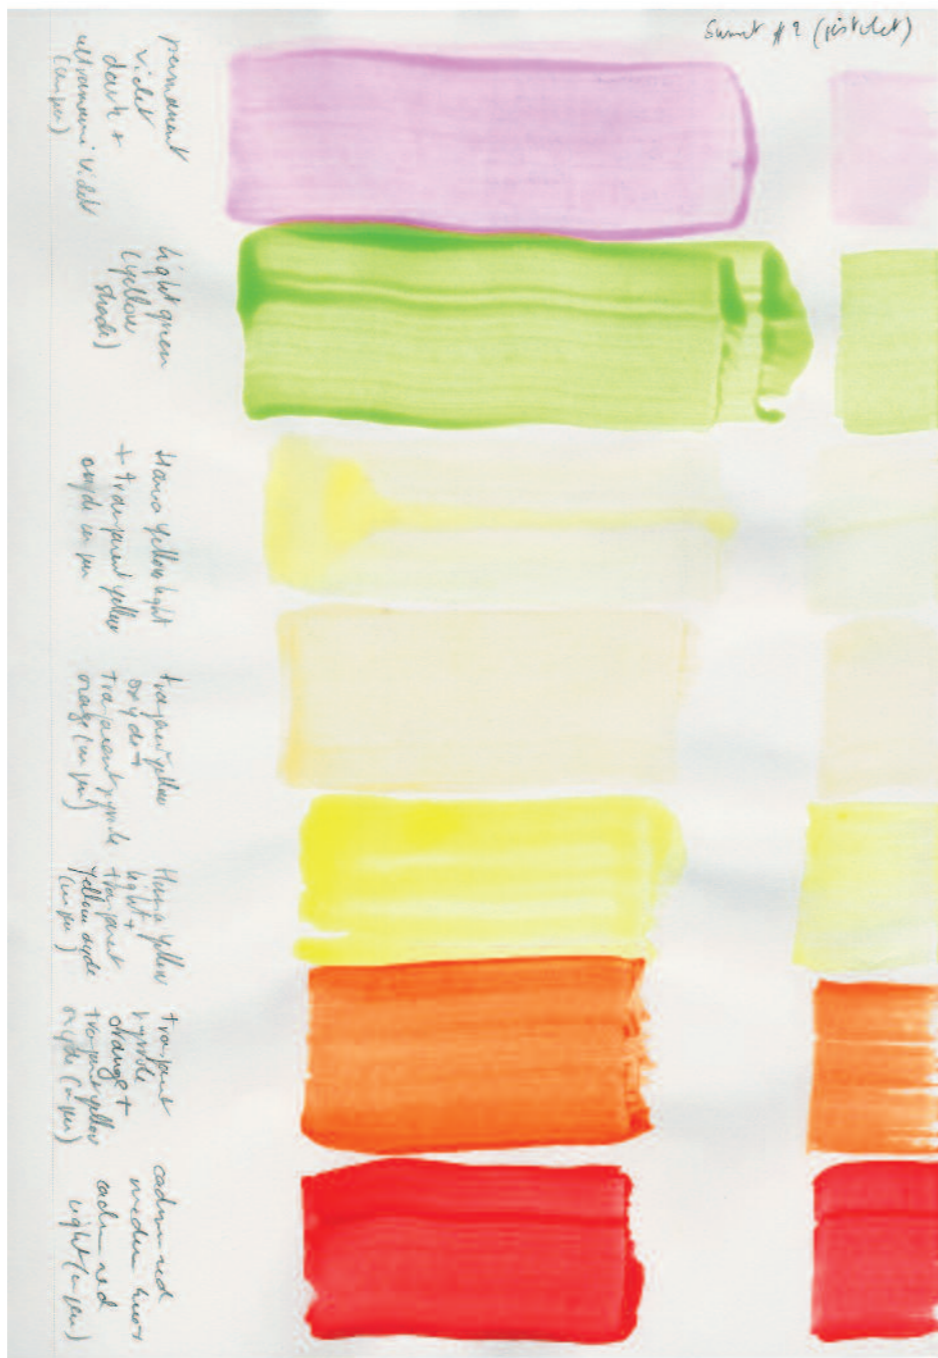 Sunset # 2 (pistolet)
permanent
violet
dark +
ultramarine violet
(un peu)
light green
(yellow
shade)
Hansa yellow light
+ transparent yellow
oxyde un peu
transparent yellow
oxyde +
transparent pyrrole
orange (un peu)
Hansa yellow
light +
transparent
yellow oxyde
(un peu)
transparent
pyrrole
orange +
transparent yellow
oxyde (un peu)
cadmium red
medium hue +
cadm red
light (un peu)